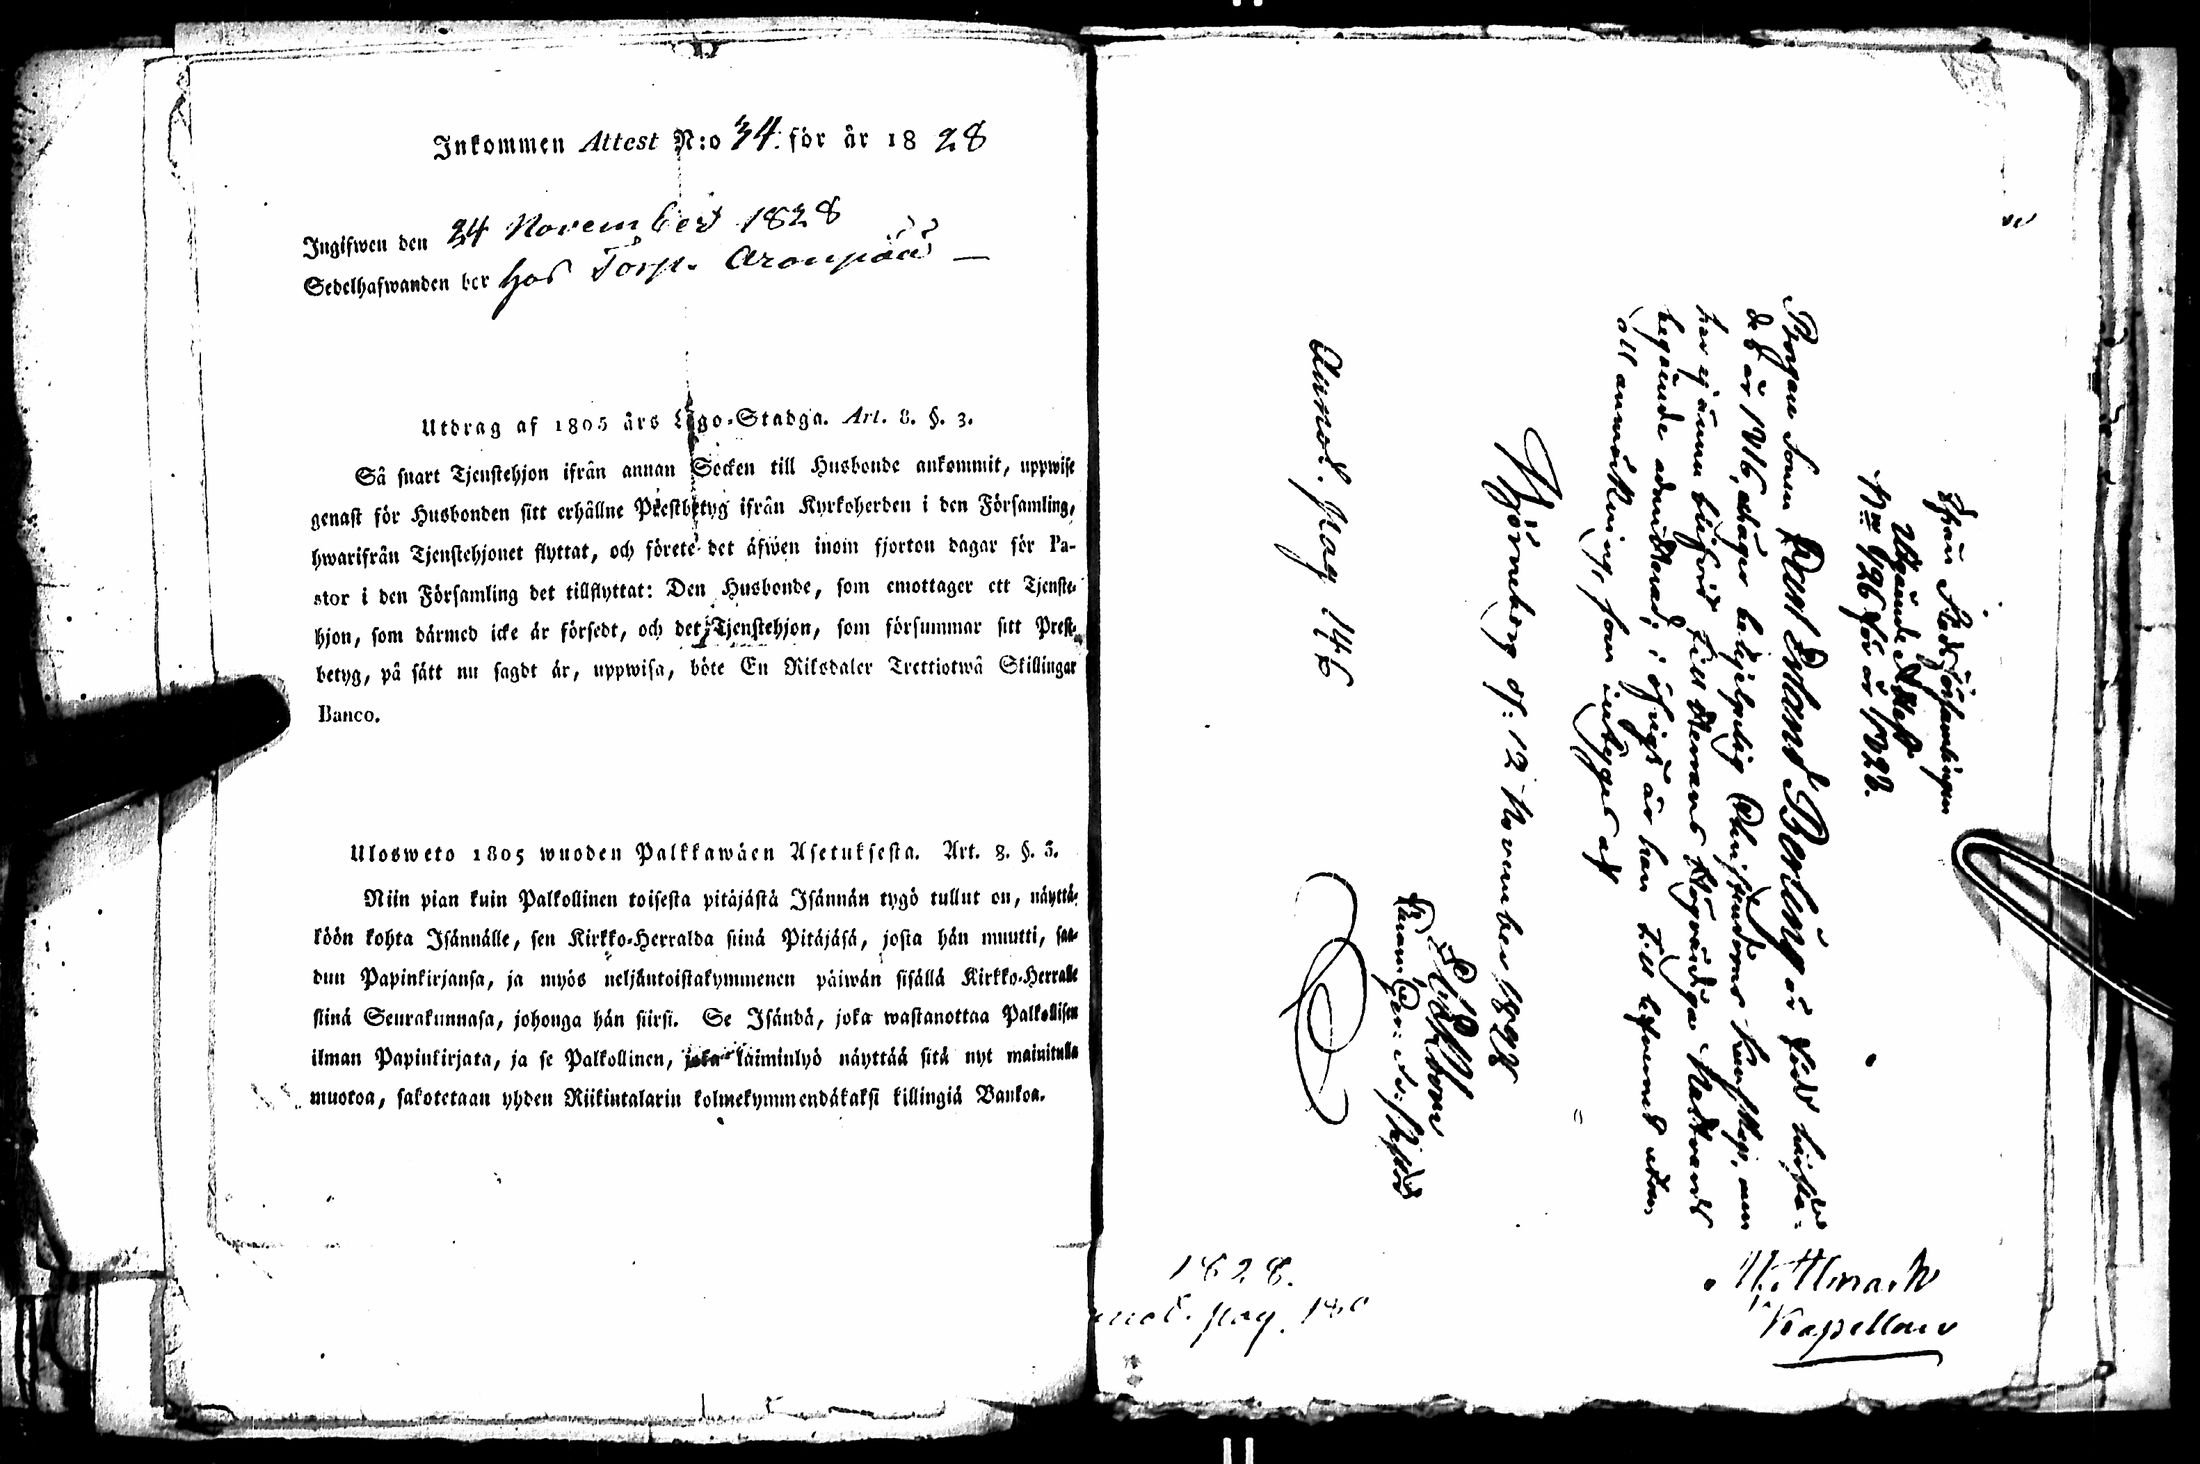 Inkommen Attest N:o 34. för år 1828
Ingifwen den 24 November 1828
Sedelhafwanden bor hos Torp. Aronpää —
Utdrag af 1805 års Lego-Stadga. Art. 8. §. 3.
Så snart Tjenstehjon ifrån annan Socken till Husbonde ankommit, uppwise
genast för Husbonden sitt erhållne Prestbetyg ifrån Kyrkoherden i den Församling,
hwarifrån Tjenstehjonet flyttat, och förete det äfwen inom fjorton dagar för Pa-
stor i den Församling det tillflyttat: Den Husbonde, som emottager ett Tjenste-
hjon, som därmed icke är försedt, och det Tjenstehjon, som försummar sitt Prest-
betyg, på sätt nu sagdt är, uppwisa, böte En Riksdaler Trettiotwå Skillingar
Banco.
Ulosweto 1805 wuoden Palkkawäen Asetuksesta. Art. 8. §. 3.
Niin pian kuin Palkollinen toisesta pitäjästä Isännän tygö tullut on, näyttä-
köön kohta Isännälle, sen Kirkko-Herralda siinä Pitäjäsä, josta hän muutti, saa-
dun Papinkirjansa, ja myös neljäntoistakymmenen päiwän sisällä Kirkko-Herralle
siinä Seurakunnasa, johonga hän siirsi. Se Isändä, joka wastanottaa Palkollisen
ilman Papinkirjata, ja se Palkollinen, joka laiminlyö näyttää sitä nyt mainitulla
muotoa, sakotetaan yhden Riikintalarin kolmekymmendäkaksi killingiä Bankoa.
Ifrån Stads Församlingen
Utgående Attest
N:o 926 för år 1828.
Drengen Sonen Carl Edland Berling är född härstä-
des år 1816, äger behjelpelig Christendoms kunskap, men
har ej ännu blifvit till Herrans Högvärdiga Nattvard
begående admitterad; i öfrigt är han till lefvernet utan
all anmärkning, som intygas af
Björneborg d: 12 November 1828
Annot. pag 146
1828.
pag. 180
Kapellan